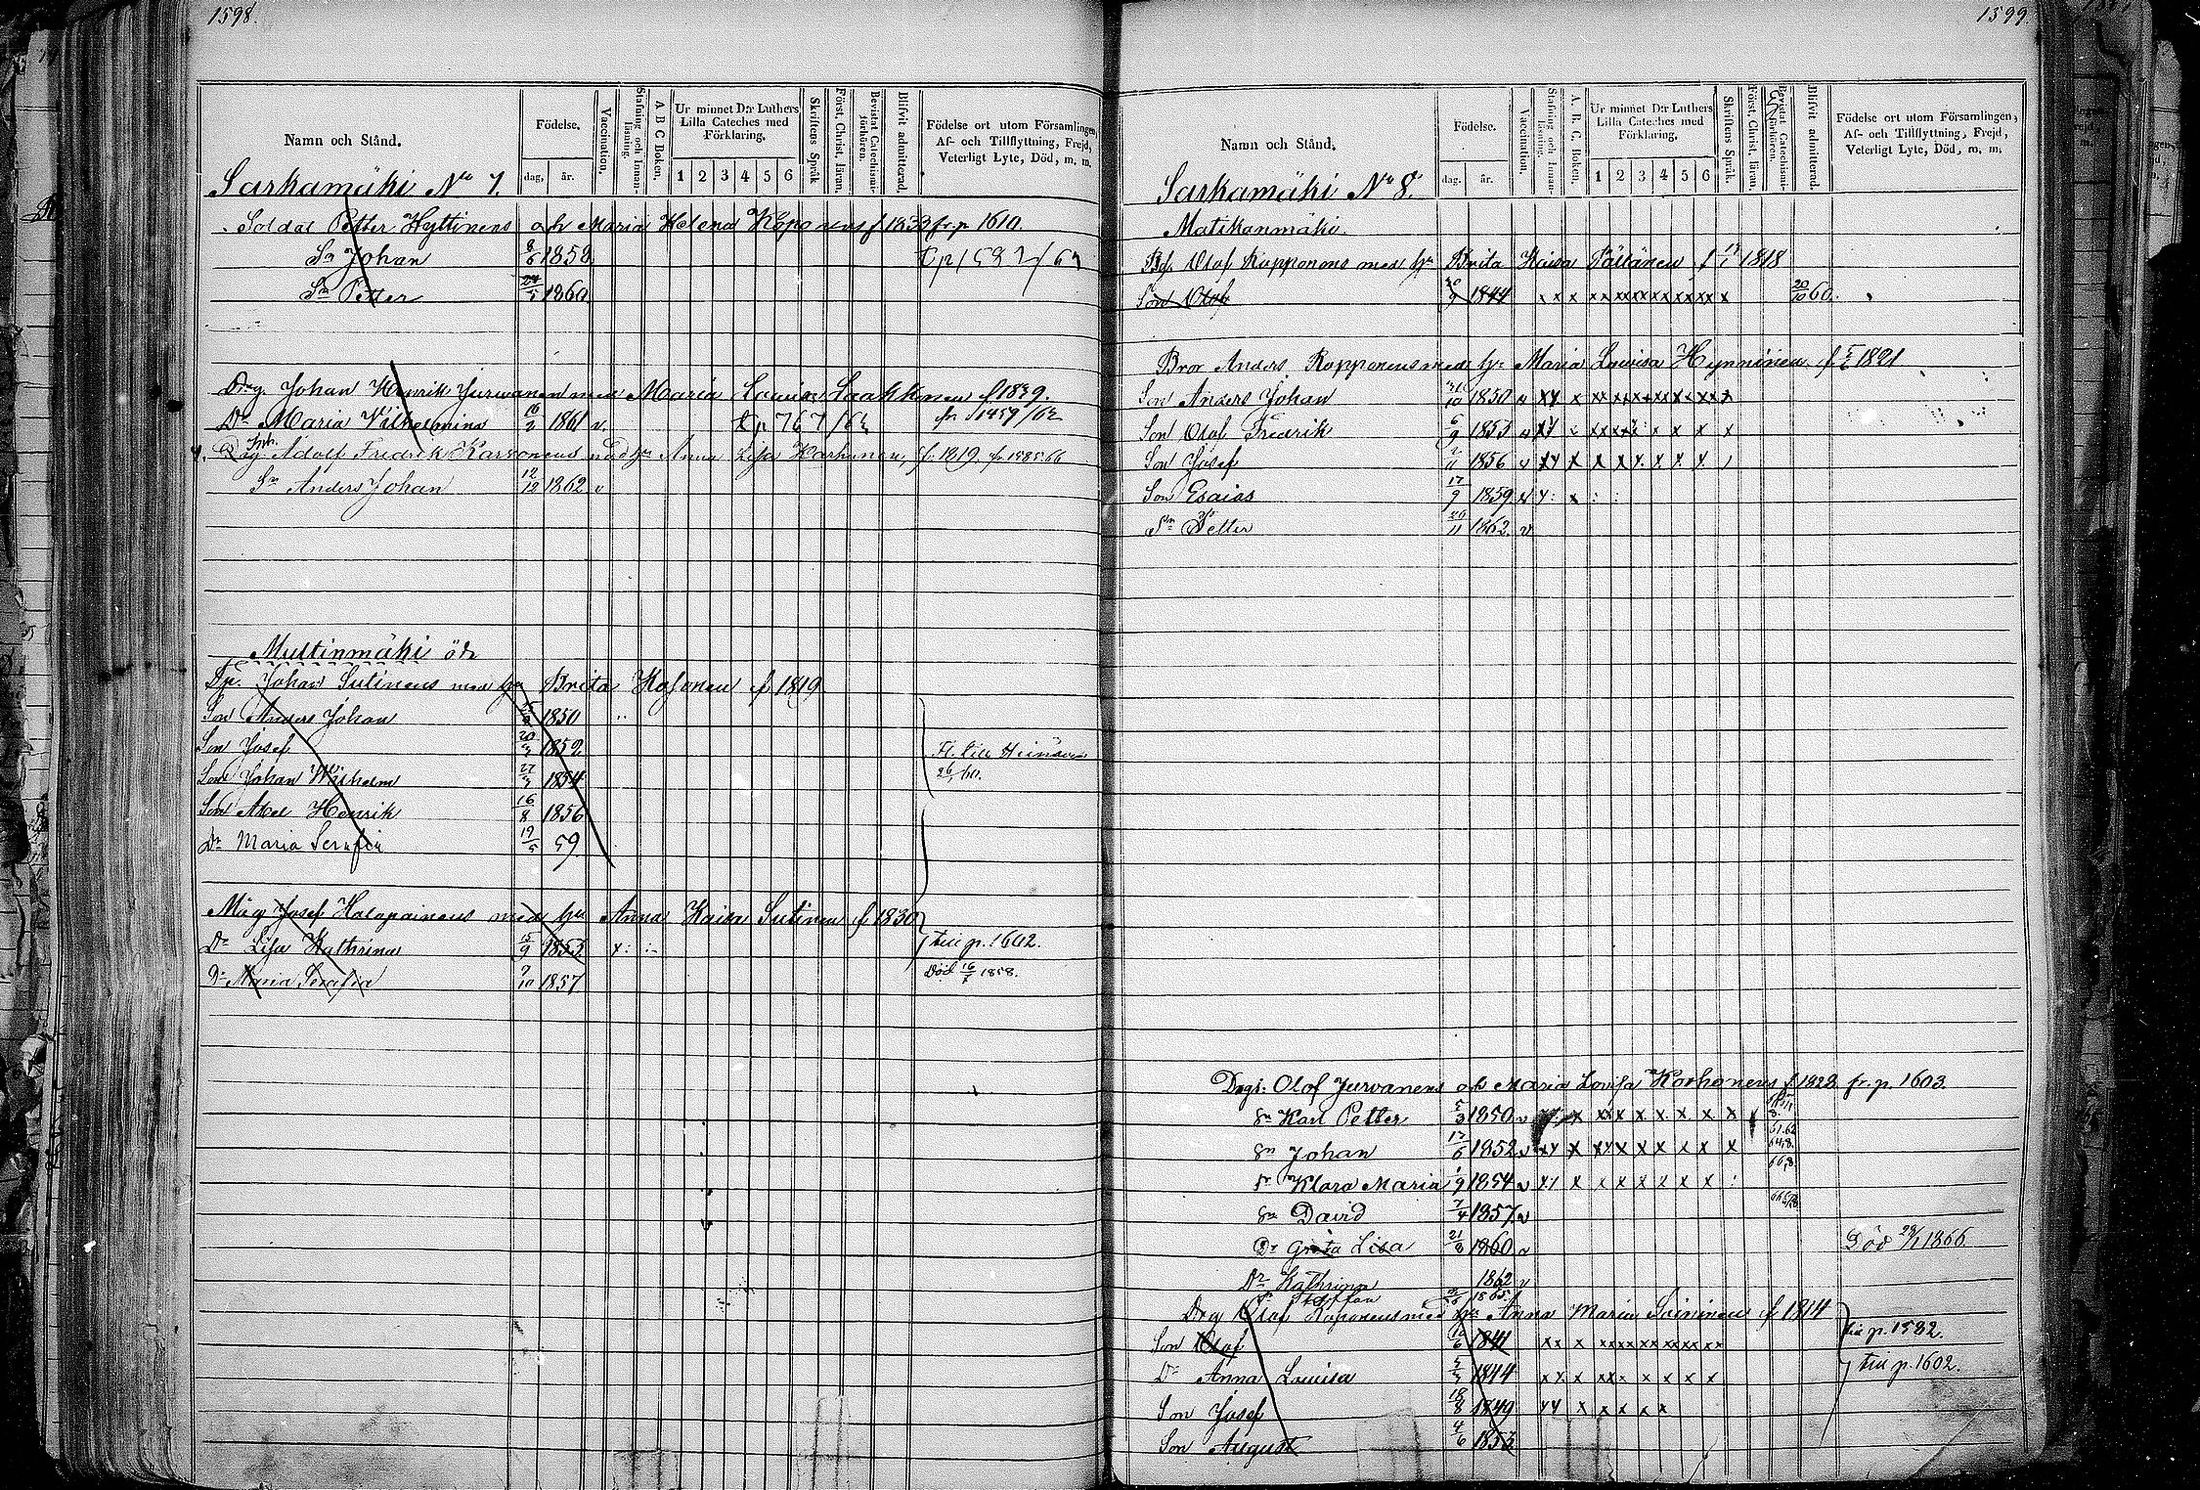 1598.
Namn och Stånd.
Födelse.
dag, år.
Vaccination.
Stafning och Innan-läsning.
A B C Boken.
Ur minnet D:r Luthers Lilla Cateches med Förklaring.
1 2 3 4 5 6
Skriftens Språk
Först. Christ. läran.
Bevistat Catechismi-förhören.
Blifvit admitterad.
Födelse ort utom Församlingen, Af- och Tillflyttning, Frejd, Veterligt Lyte, Död, m. m.
Sarkamäki No 7.
Soldat Petter Hyttinens och Maria Helena Koponens f 1833 fr. p 1610.
Sn Johan 8/6 1858
Sn Petter 1860
Drg. Johan Henrik Jurvanen med Maria Lovisa Laakkonen f 1839.
Dr Maria Vilhelmina 16/2 1861 v. tp 767/62 fr. 1459/62
Adolf Fredrik Karvonens med hu Anna Lisa Karhunen, f. 1819. fr. 1585 66
Sn Anders Johan 12/12 1862 v
Multinmäki öde
Johan Sutinens med hu Brita Kosonen f. 1819
Son Anders Johan 1850
Son Josef 1852
Son Johan Wilhelm 1854
Son Axel Henrik 16/8 1856
Dr Maria Serafia 19/5 59
Fl. till
Måg Josef Halopainens med hu Anna Kaisa Sutinen f 1830
Dr Lisa Kathrina 15/9 1853 x till p. 1602.
Dr Maria Serafia 9/10 1857 Död 16/7 1858.
1599.
Namn och Stånd.
Födelse.
dag. år.
Vaccination.
Stafning och Innan-läsning.
A. B. C. Boken.
Ur minnet D:r Luthers Lilla Cateches med Förklaring.
1 2 3 4 5 6
Skriftens Språk.
Först. Christ. läran.
Bevistat Catechismi-förhören.
Blifvit admitterad.
Födelse ort utom Församlingen, Af- och Tillflyttning, Frejd, Veterligt Lyte, Död, m. m.
Sarkamäki No 8.
Matikanmäki.
Olof Ropponens med hu Brita Kaisa Pältänen f 1818
Son Olof 1844 x x x x x x x x x x x x x 20/10 60.
Bror Anders Ropponens med hu Maria Lovisa Hynninen f 5/6 1821
Son Anders Johan 31/10 1850
Son Olof Fredrik 6/9 1853
Son Josef 1856
Son Esaias 17/9 1859
Sn Petter 20/11 1862 v
Drgs: Olof Jurvanens och Maria Lovisa Korhonens f. 1828 fr. p. 1603.
Sn Karl Petter 5/3 1850 v
Sn Johan 17/6 1852 v
Dr Klara Maria 1/9 1854 v
Sn David 7/4 1857 v
Dr Greta Lisa 21/8 1860 v Död 1866
Dr Kathrina 1862 v
Staffan 1865
Drg Olof Koponens med hu Anna Maria Toivinen f 1814
Son Olof 1841 till p. 1582.
Dr Anna Lovisa 1844 till p. 1602.
Son Josef 18/8 1849
Son August 4/6 1853